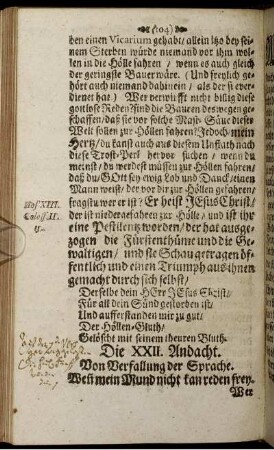 (104)
ben einen Vicarium gehabt/ allein itzo bey sei-
nem Sterben würde niemand vor ihm wol-
len in die Hölle fahren/ wenn es auch gleich
der geringste Bauer wäre. (Und freylich ge-
hört auch niemand dahinein/ als der si ver-
dienet hat) Wer verwirfft nicht billig diese
gottlose Reden? sind die Bauren deswegen ge-
schaffen/ daß sie vor solche Mast-Säue dieser
Welt sollen zur Höllen fahren? Jedoch mein
Hertz/ du kanst auch aus diesem Unflath nach
diese Trost-Perl hervor suchen/ wenn du
meinst/ du werdest müssen zur Höllen fahren/
daß du/ GOtt sey ewig Lob und Danck/ einen
Mann weist/ der vor dir zur Höllen gefahren/
fragstu wer er ist? Er heist JEsus Christ/
der ist niedergefahren zur Hölle/ und ist ihr
eine Pestilentz worden/ der hat ausge-
zogen die Fürstenthüme und die Ge-
waltigen/ und sie Schau getragen ö-
ffentlich und einen Triumph aus ihnen
gemacht durch sich selbst/
Hos. XIII.
Coloss. II.
Derselbe dein HErr JEsus Christ/
Für all dein Sünd gestorben ist/
Und aufferstanden mir zu gut/
Der Höllen-Gluth/
Gelöscht mit seinem theuren Bluth.
Die XXII. Andacht.
Von Verfallung der Sprache.
Weñ mein Mund nicht kan reden frey.
Wer